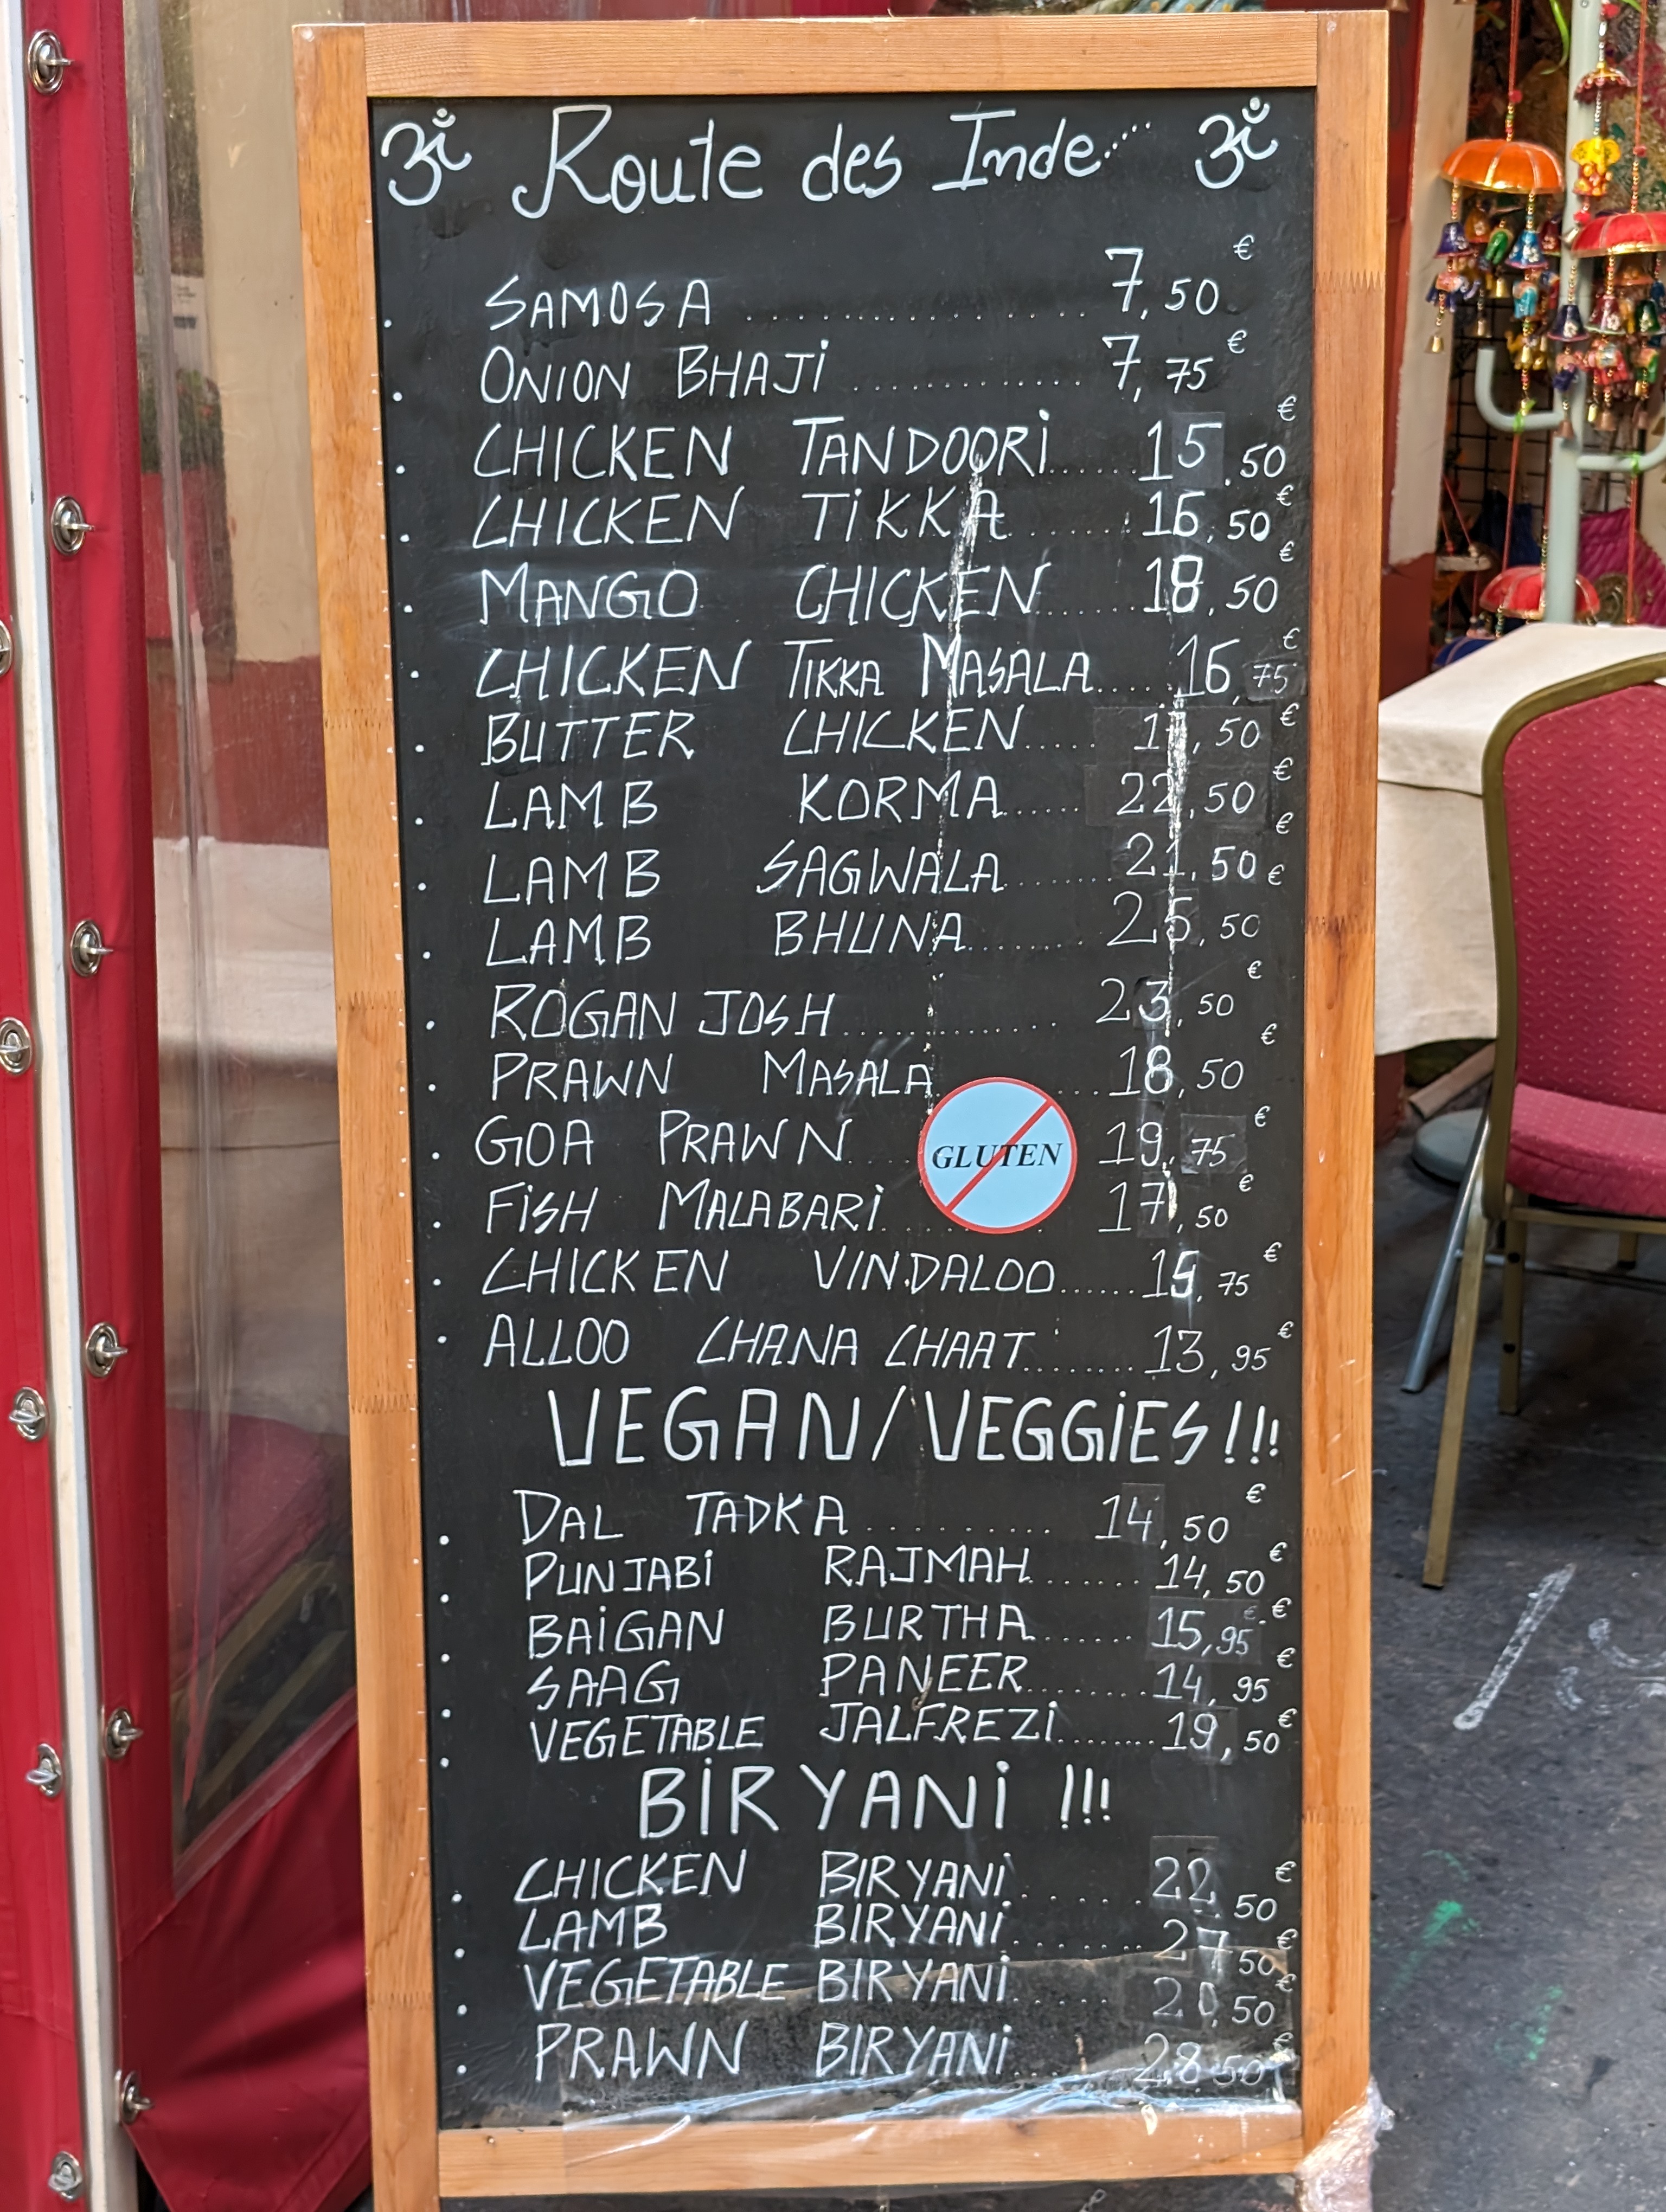 ॐ Route des Inde ॐ
SAMOSA .................. 7,50 €
ONION BHAJI ............. 7,75 €
CHICKEN TANDOORI...... 15.50 €
CHICKEN TIKKA........ 16,50 €
MANGO CHICKEN...... 18,50 €
CHICKEN TIKKA MASALA..... 16,75 €
BUTTER CHICKEN..... ,50 €
LAMB KORMA...... 22,50 €
LAMB SAGWALA........ 21,50 €
LAMB BHUNA........ 25,50 €
ROGAN JOSH............. 23,50 €
PRAWN MASALA........ 18,50 €
GOA PRAWN.... 19,75 €
GLUTEN
FISH MALABARI....... 17,50 €
CHICKEN VINDALOO...... 15,75 €
ALLOO CHANA CHAAT........ 13,95 €
VEGAN/VEGGIES!!!
DAL TADKA.......... 14,50 €
PUNJABI RAJMAH....... 14,50 €
BAIGAN BURTHA....... 15,95 €
SAAG PANEER........ 14,95 €
VEGETABLE JALFREZI........ 19,50 €
BIRYANI !!!
CHICKEN BIRYANI...... 22,50 €
LAMB BIRYANI........ 27,50 €
VEGETABLE BIRYANI...... ,50 €
PRAWN BIRYANI.... 28,50 €